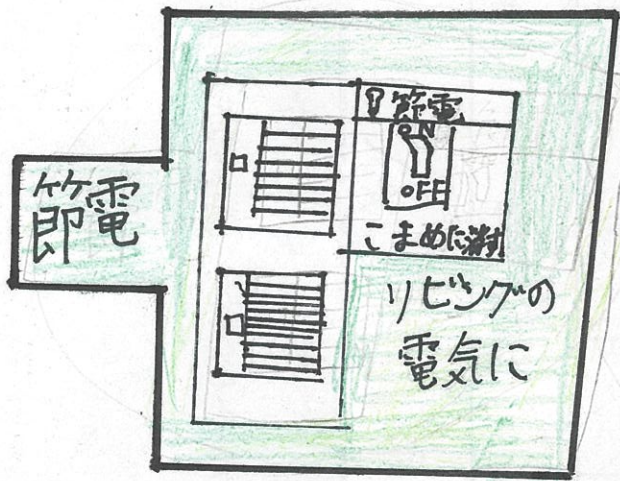 節電
節電
ON
OFF
こまめに消す
リビングの
電気に